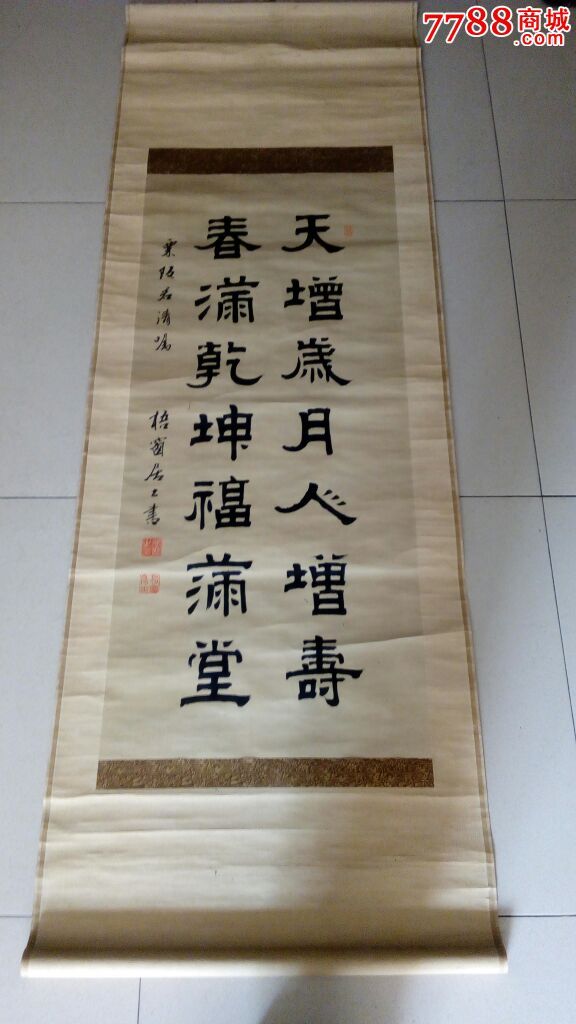 7788商城
.com
天增歲月人增壽
春滿乾坤福滿堂
梧窗居士書